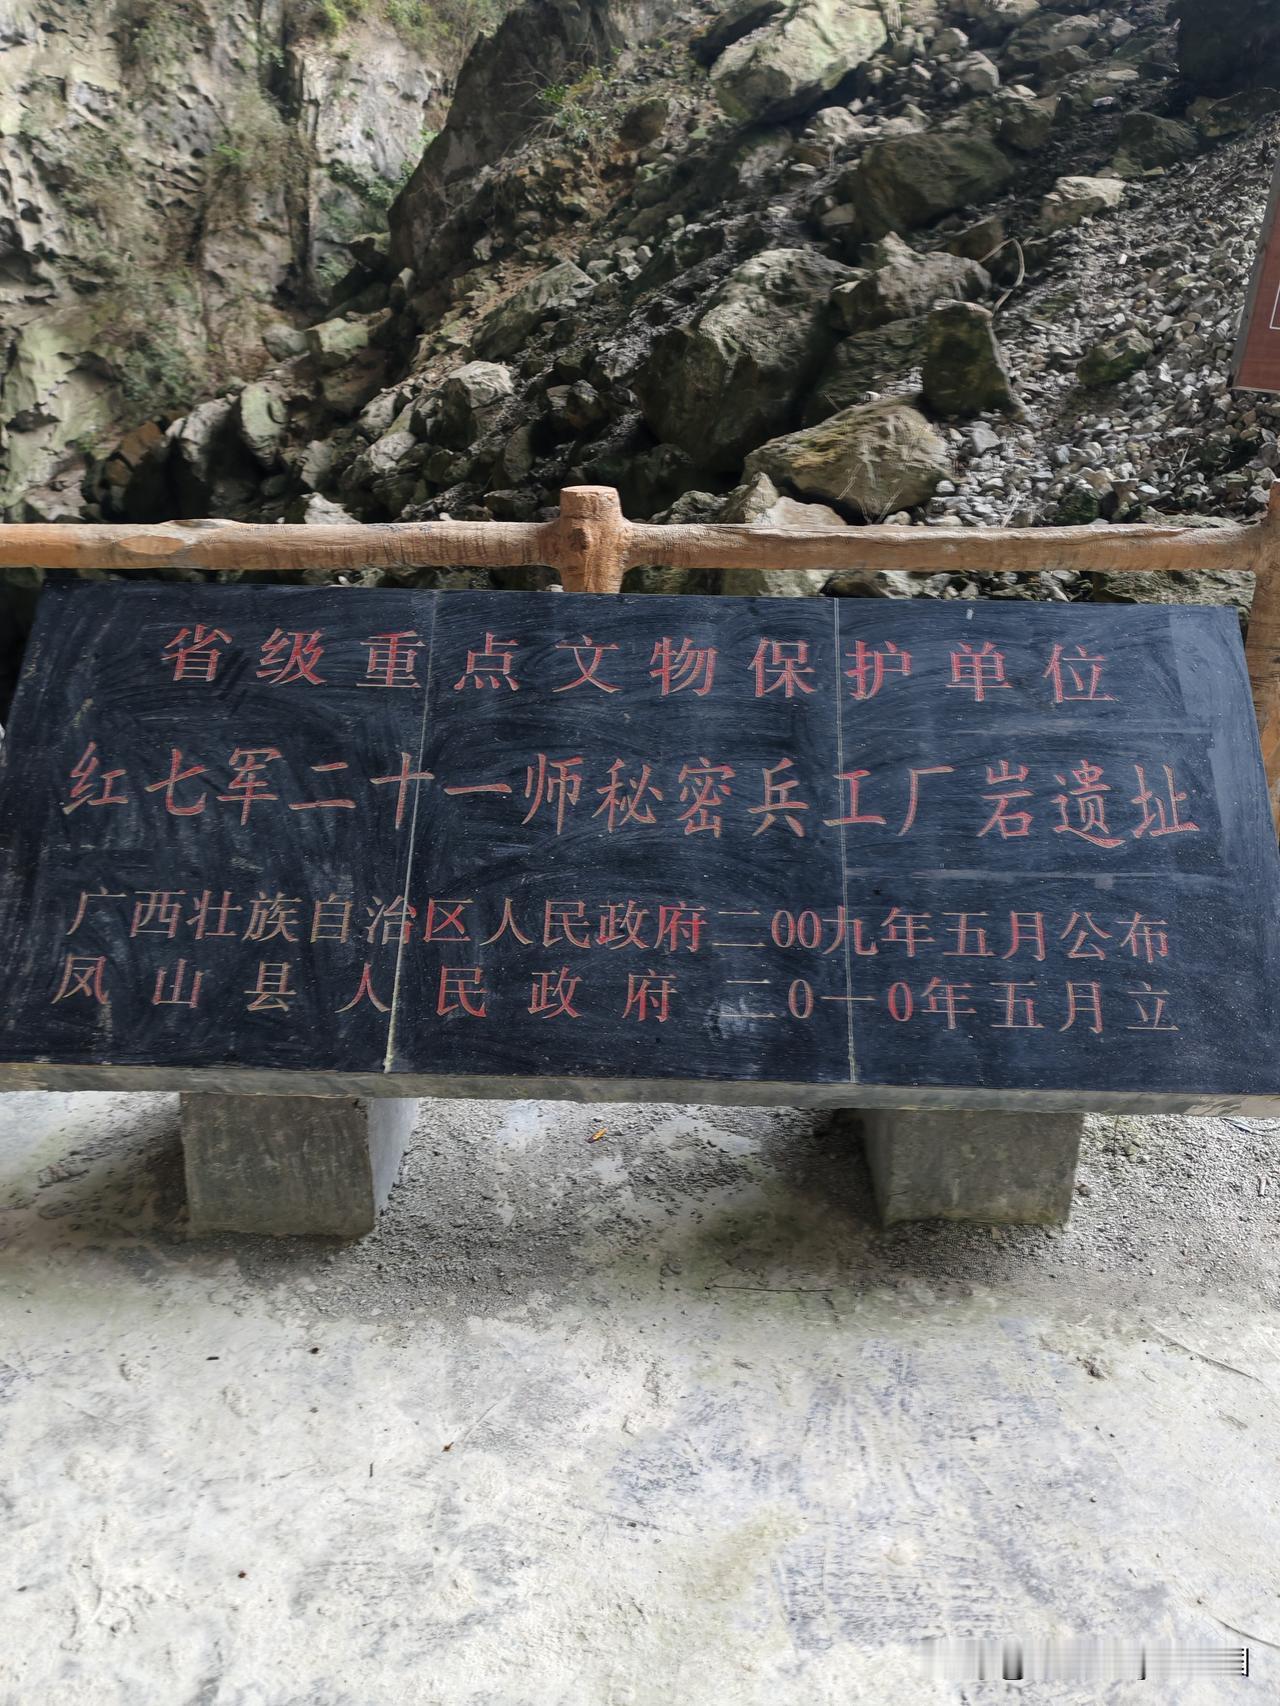 省级重点文物保护单位
红七军二十一师秘密兵工厂岩遗址
广西壮族自治区人民政府二00九年五月公布
凤山县人民政府二0一0年五月立